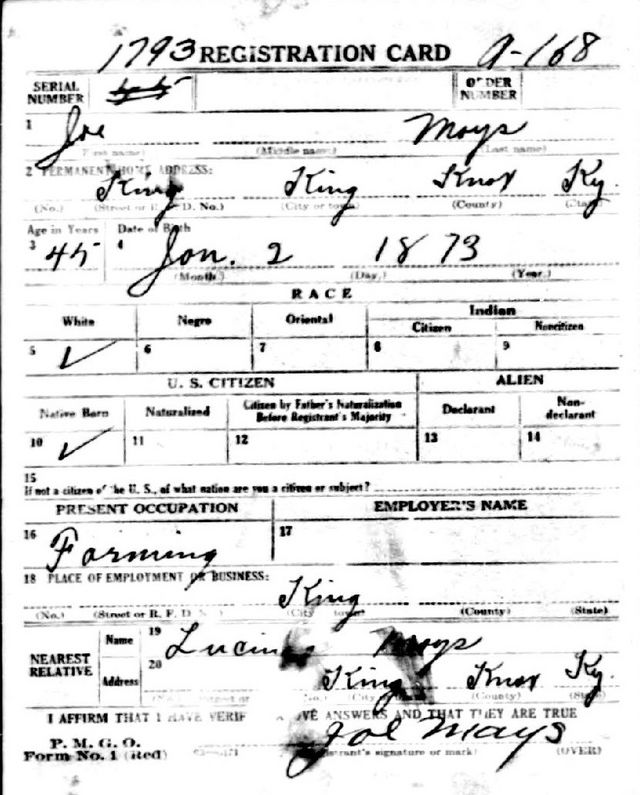 1793 REGISTRATION CARD A-168
SERIAL NUMBER ORDER NUMBER
1 Joe Mays
(First name) (Middle name) (Last name)
2 PERMANENT HOME ADDRESS:
King King Knox Ky.
(No.) (Street or R. F. D. No.) (City or town) (County) (State)
Age in Years Date of Birth
3 45 4 Jan. 2 1873
(Month.) (Day.) (Year.)
RACE
White Negro Oriental Indian
Citizen Noncitizen
5 ✓ 6 7 8 9
U. S. CITIZEN ALIEN
Native Born Naturalized Citizen by Father's Naturalization Before Registrant's Majority Declarant Non-declarant
10 ✓ 11 12 13 14
15
If not a citizen of the U. S., of what nation are you a citizen or subject?
PRESENT OCCUPATION EMPLOYER'S NAME
16 Farming 17
18 PLACE OF EMPLOYMENT OR BUSINESS:
King
(No.) (Street or R. F. D. (City town) (County) (State)
NEAREST RELATIVE
Name 19 Mays
Address 20 King Knox Ky.
(No.) (Street or No.) (City (County) (State)
I AFFIRM THAT I HAVE VERIF VE ANSWERS AND THAT THEY ARE TRUE
P. M. G. O.
Form No. 1 (Red) Joe Mays
(Registrant's signature or mark) (OVER)